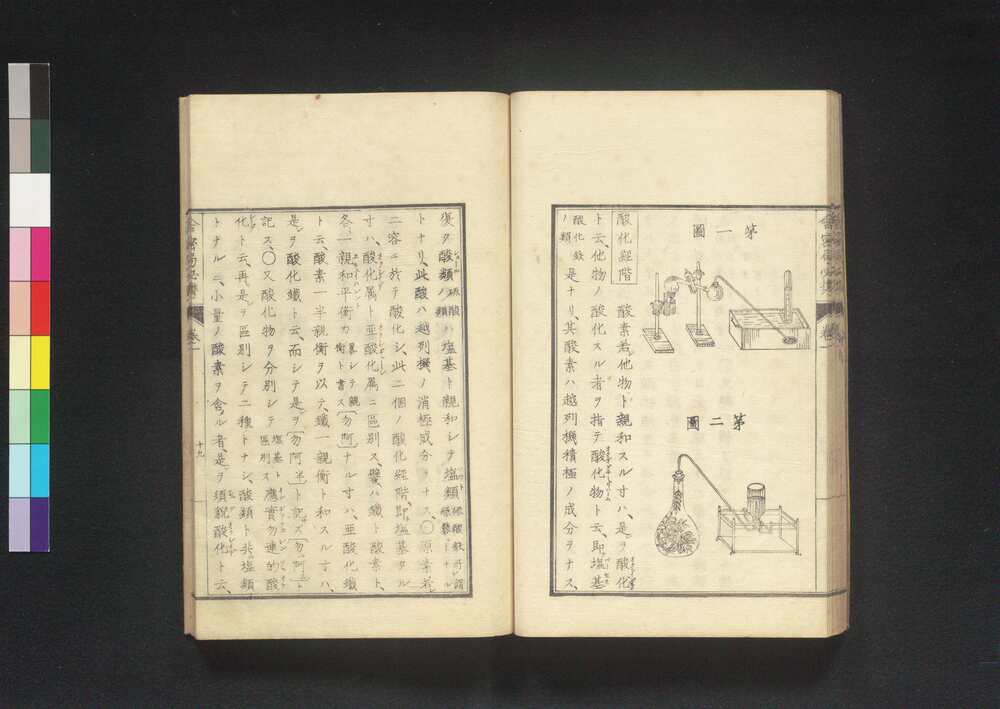 第一圖
第二圖
酸化經階　酸素若他物ト親和スル寸ハ、是ヲ酸化
ト云、他物ノ酸化スル者ヲ指テ酸化物ト云、即塩基
酸化数ノ類是ナリ、其酸素ハ越列機積極ノ成分ヲナス、
復タ酸類硫酸ノ類ハ塩基ト親和シテ塩類
トナリ、此酸ハ越列機ノ消極成分ヲナス、〇原素若
二容ニ於テ酸化シ、此二個ノ酸化経階即塩基タル
寸ハ、酸化属ト亜酸化属ニ区別ス、譬ハ鐵ト酸素ト、
各一親和平衡カ畧シテ親衡ト書ス[勿阿]ナル寸ハ、亜酸化鐵
ト云、酸素一半親衡ヲ以テ、鐵一親衡ト和スル寸ハ、
是ヲ酸化鐵ト云、而シテ是ヲ
記ス、〇又酸化物ヲ分別シテ塩基ト區別ス應實勿連的酸
化ト云、再是ヲ區別シテ二種トナシ、酸類ト塩類
トナル、小量ノ酸素ヲ含ム者、是ヲ須貌酸化ト云、
十九